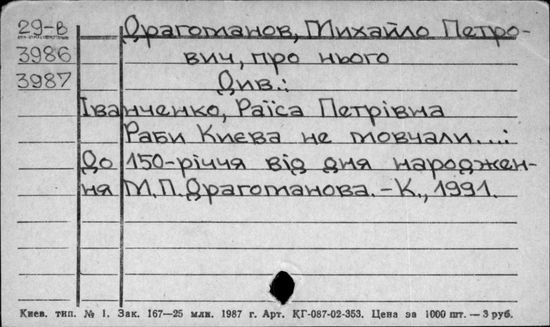 29-В Драгоманов, Михайло Петро-
3986 вич, про нього
3987 Див.:
Іванченко, Раїса Петрівна
Раби Києва не мовчали....:
До 150-річчя від дня народжен-
ня М.П.Драгоманова. -К., 1991.
Киев. тип. № 1. Зак. 167—25 млн. 1987 г. Арт. КГ-087-02-353. Цена за 1000 шт. — 3 руб.